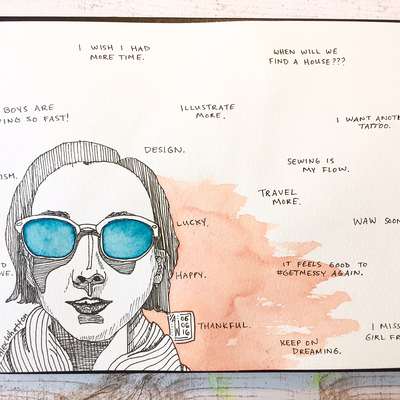 I WISH I HAD
MORE TIME.
WHEN WILL WE
FIND A HOUSE???
BOYS ARE
ING SO FAST!
ILLUSTRATE
MORE.
I WANT ANOTH
TATTOO.
DESIGN.
SEWING IS
MY FLOW.
ISM.
TRAVEL
MORE.
LUCKY.
WAW SOON
D
VE.
HAPPY.
IT FEELS GOOD TO
#GETMESSY AGAIN.
06
06
16
THANKFUL.
KEEP ON
DREAMING.
I MISS
GIRL FR